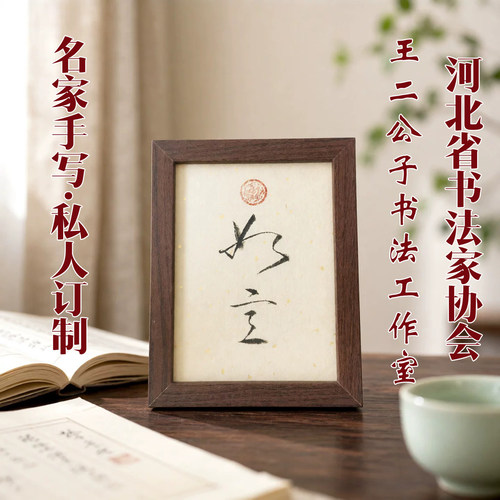 河北省书法家协会
王二公子书法工作室
名家手写·私人订制